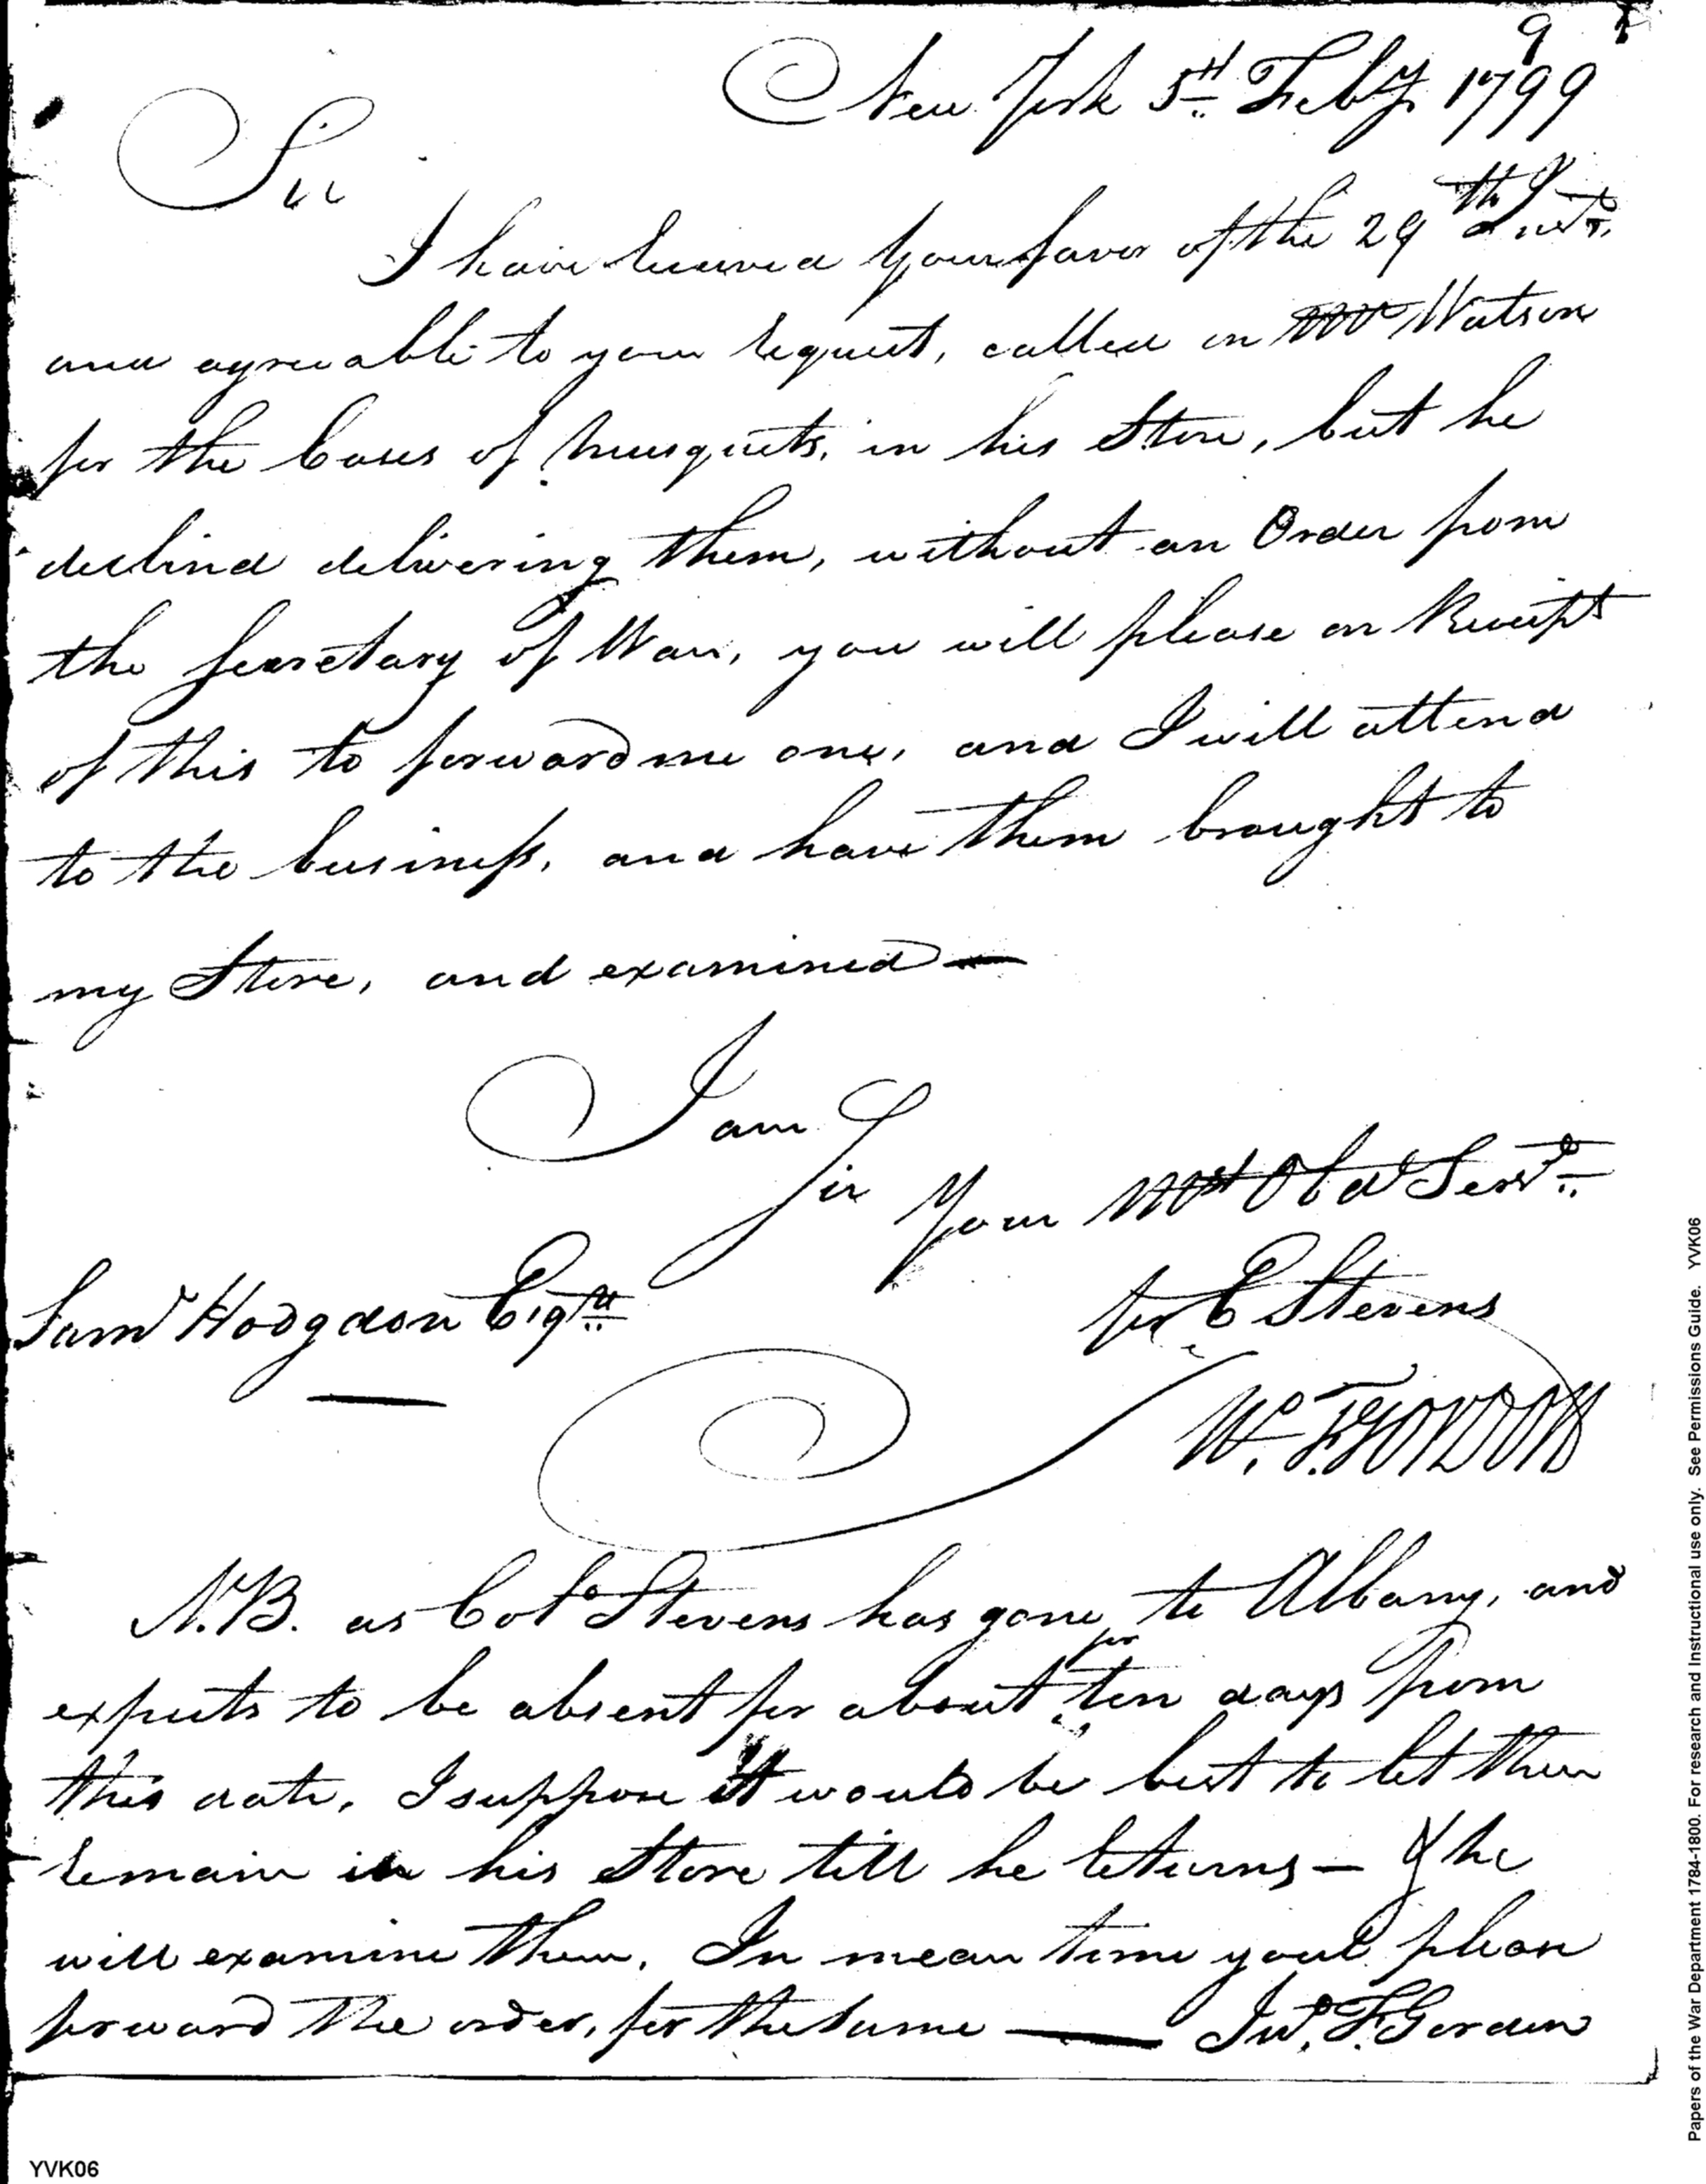 9
New York 5th Feby. 1799
Sir
I have received your favor of the 29th Inst.
and agreeable to your request, called on Mr Watson
for the Cases of Musquets, in his Store, but he
declind delivering them, without an Order from
the Secretary of War, you will please on Receipt
of this to forward me one, and I will attend
to the business, and have them brought to
my Store, and examined —
I am
Sir
Your Mst Obd Servt.
for E Stevens
Saml Hodgdon Esqre
Wm. F. GORDON
N.B. as Colo Stevens has gone to Albany, and
for
expects to be absent for about ten days from
this date, I suppose it would be best to let them
remain in his Store till he returns — & he
will examine them, In mean time youl please
forward the order, for the same — Wm. F. Gordon
Papers of the War Department 1784-1800. For research and instructional use only. See Permissions Guide. YVK06
YVK06